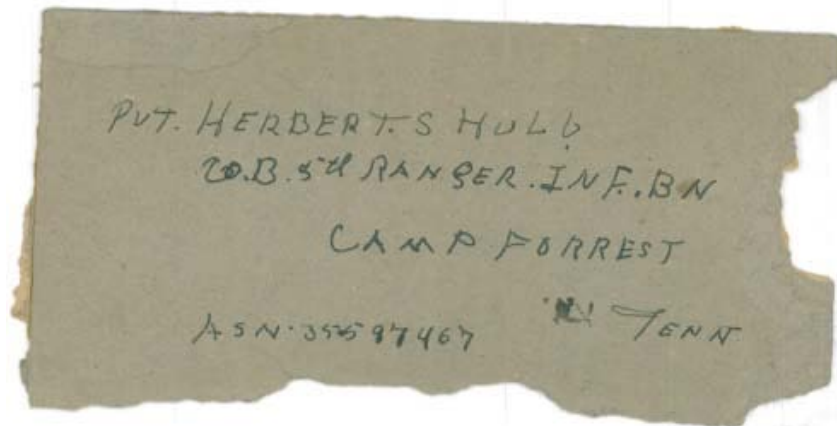 PVT. HERBERT. S HULL
CO. B. 5th RANGER. INF. BN
CAMP FORREST
TENN
ASN. 35597467